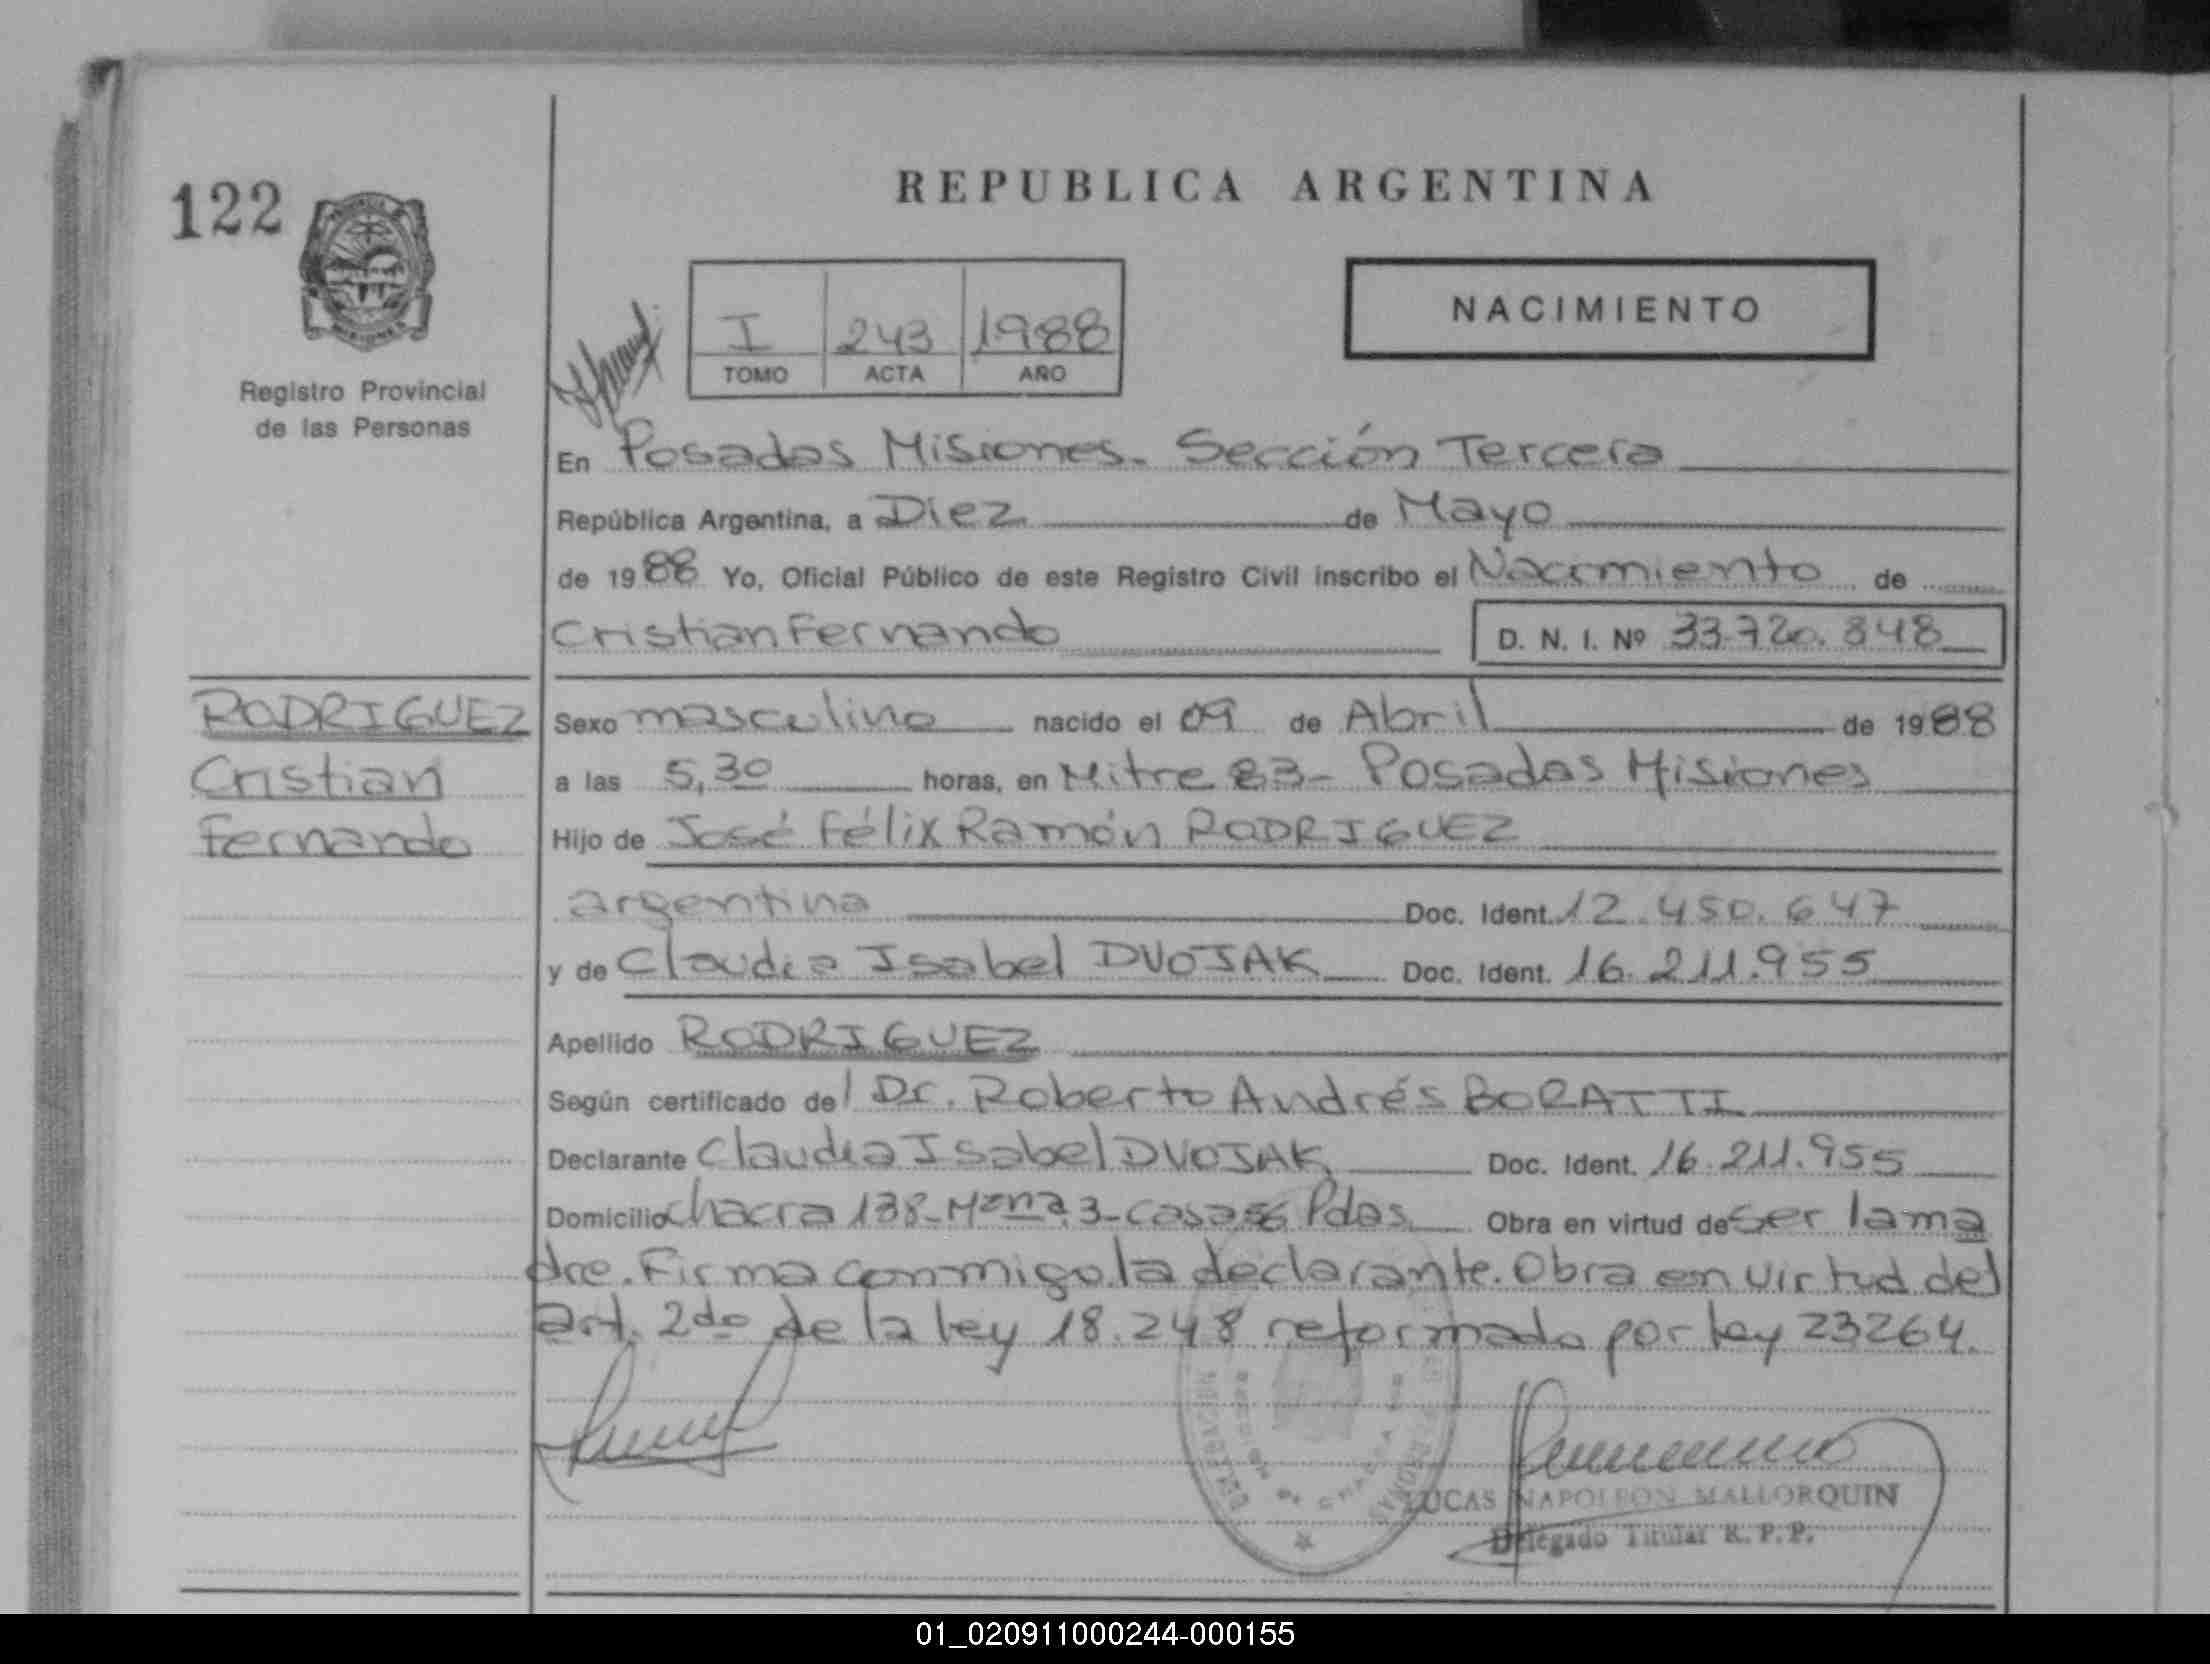 122
REPUBLICA ARGENTINA
NACIMIENTO
I 243 1988
TOMO ACTA AÑO
Registro Provincial
de las Personas
En Posadas Misiones. Sección Tercera
República Argentina, a Diez de Mayo
de 1988 Yo, Oficial Público de este Registro Civil inscribo el Nacimiento de
Cristian Fernando D. N. I. Nº 33.720.848
RODRIGUEZ
Cristian
Fernando
Sexo masculino nacido el 09 de Abril de 1988
a las 5,30 horas, en Mitre 83- Posadas Misiones
Hijo de José Félix Ramón RODRIGUEZ
argentina Doc. Ident. 12.450.647
y de Claudia Isabel DVOJAK Doc. Ident. 16.211.955
Apellido RODRIGUEZ
Según certificado del Dr. Roberto Andrés BORATTI
Declarante Claudia Isabel DVOJAK Doc. Ident. 16.211.955
Domicilio chacra 138-Mzna.3-casa 56 Pdas. Obra en virtud de ser la ma
dre. Firma conmigo la declarante. Obra en virtud del
art. 2do de la ley 18.248 reformado por ley 23264.
LUCAS NAPOLEON MALLORQUIN
Delegado Titular R. P. P.
01_020911000244-000155